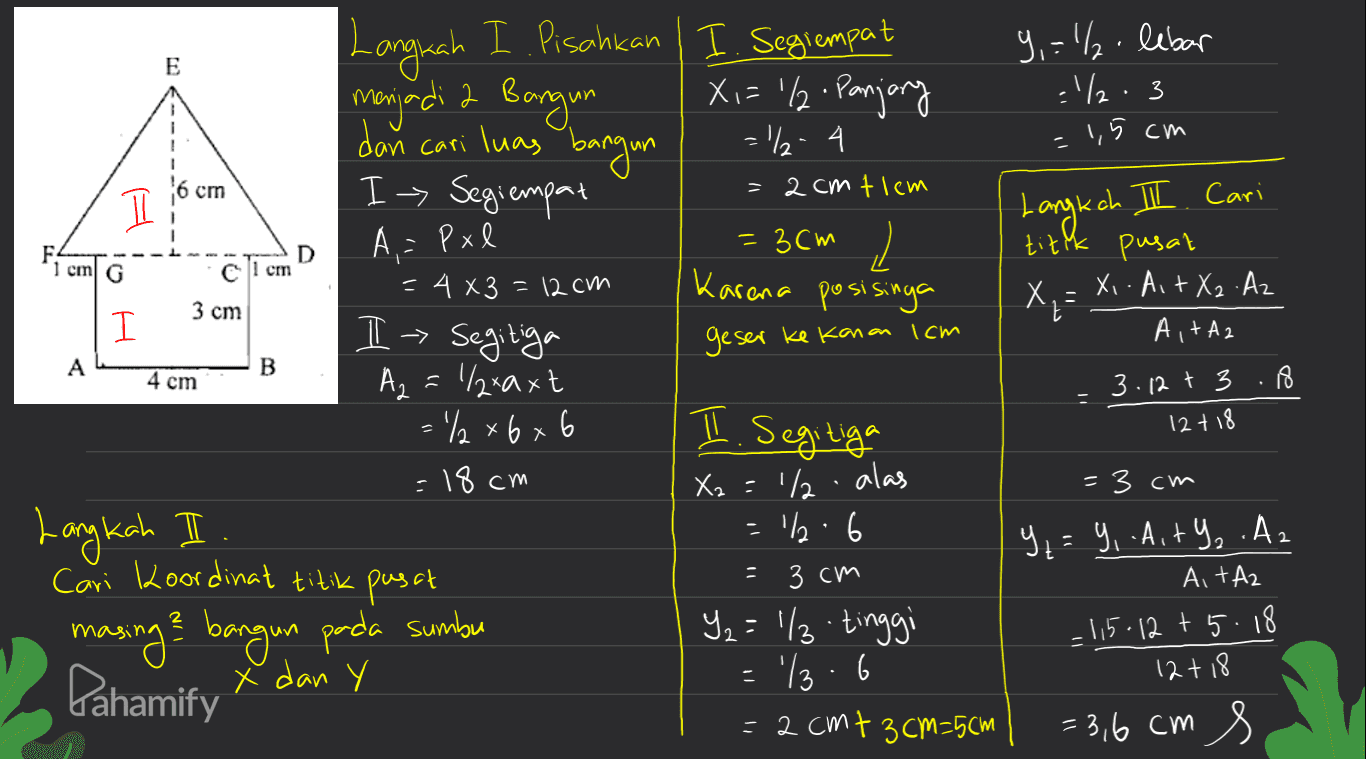 E
6 cm
II
F
D
1 cm
G
C
1 cm
3 cm
I
A
B
4 cm
Langkah I. Pisahkan
menjadi 2 Bangun
dan cari luas bangun
I → Segiempat
A₁ = P x l
= 4 x 3 = 12 cm
II → Segitiga
A₂ = 1/2 x a x t
= 1/2 x 6 x 6
= 18 cm
Langkah II.
Cari Koordinat titik pusat
masing² bangun pada sumbu
x dan y
I. Segiempat
X₁ = 1/2 · Panjang
= 1/2 · 4
= 2 cm + 1 cm
= 3 cm ↓
Karena posisinya
geser ke kanan 1 cm
II. Segitiga
X₂ = 1/2 · alas
= 1/2 · 6
= 3 cm
y₂ = 1/3 · tinggi
= 1/3 · 6
= 2 cm + 3 cm = 5 cm
y₁ = 1/2 · lebar
= 1/2 · 3
= 1,5 cm
Langkah III. Cari
titik pusat
X_t = X₁ · A₁ + X₂ · A₂
A₁ + A₂
= 3 · 12 + 3 · 18
12 + 18
= 3 cm
y_t = y₁ · A₁ + y₂ · A₂
A₁ + A₂
= 1,5 · 12 + 5 · 18
12 + 18
= 3,6 cm
Pahamify